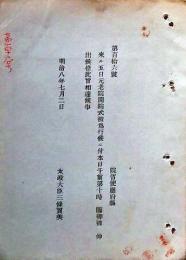 第百拾六號
院省使廳府縣
來ル五日元老院開院式被爲行候ニ付本日午前第十時 臨御被 仰
出候條此旨相達候事
明治八年七月二日
太政大臣三條實美